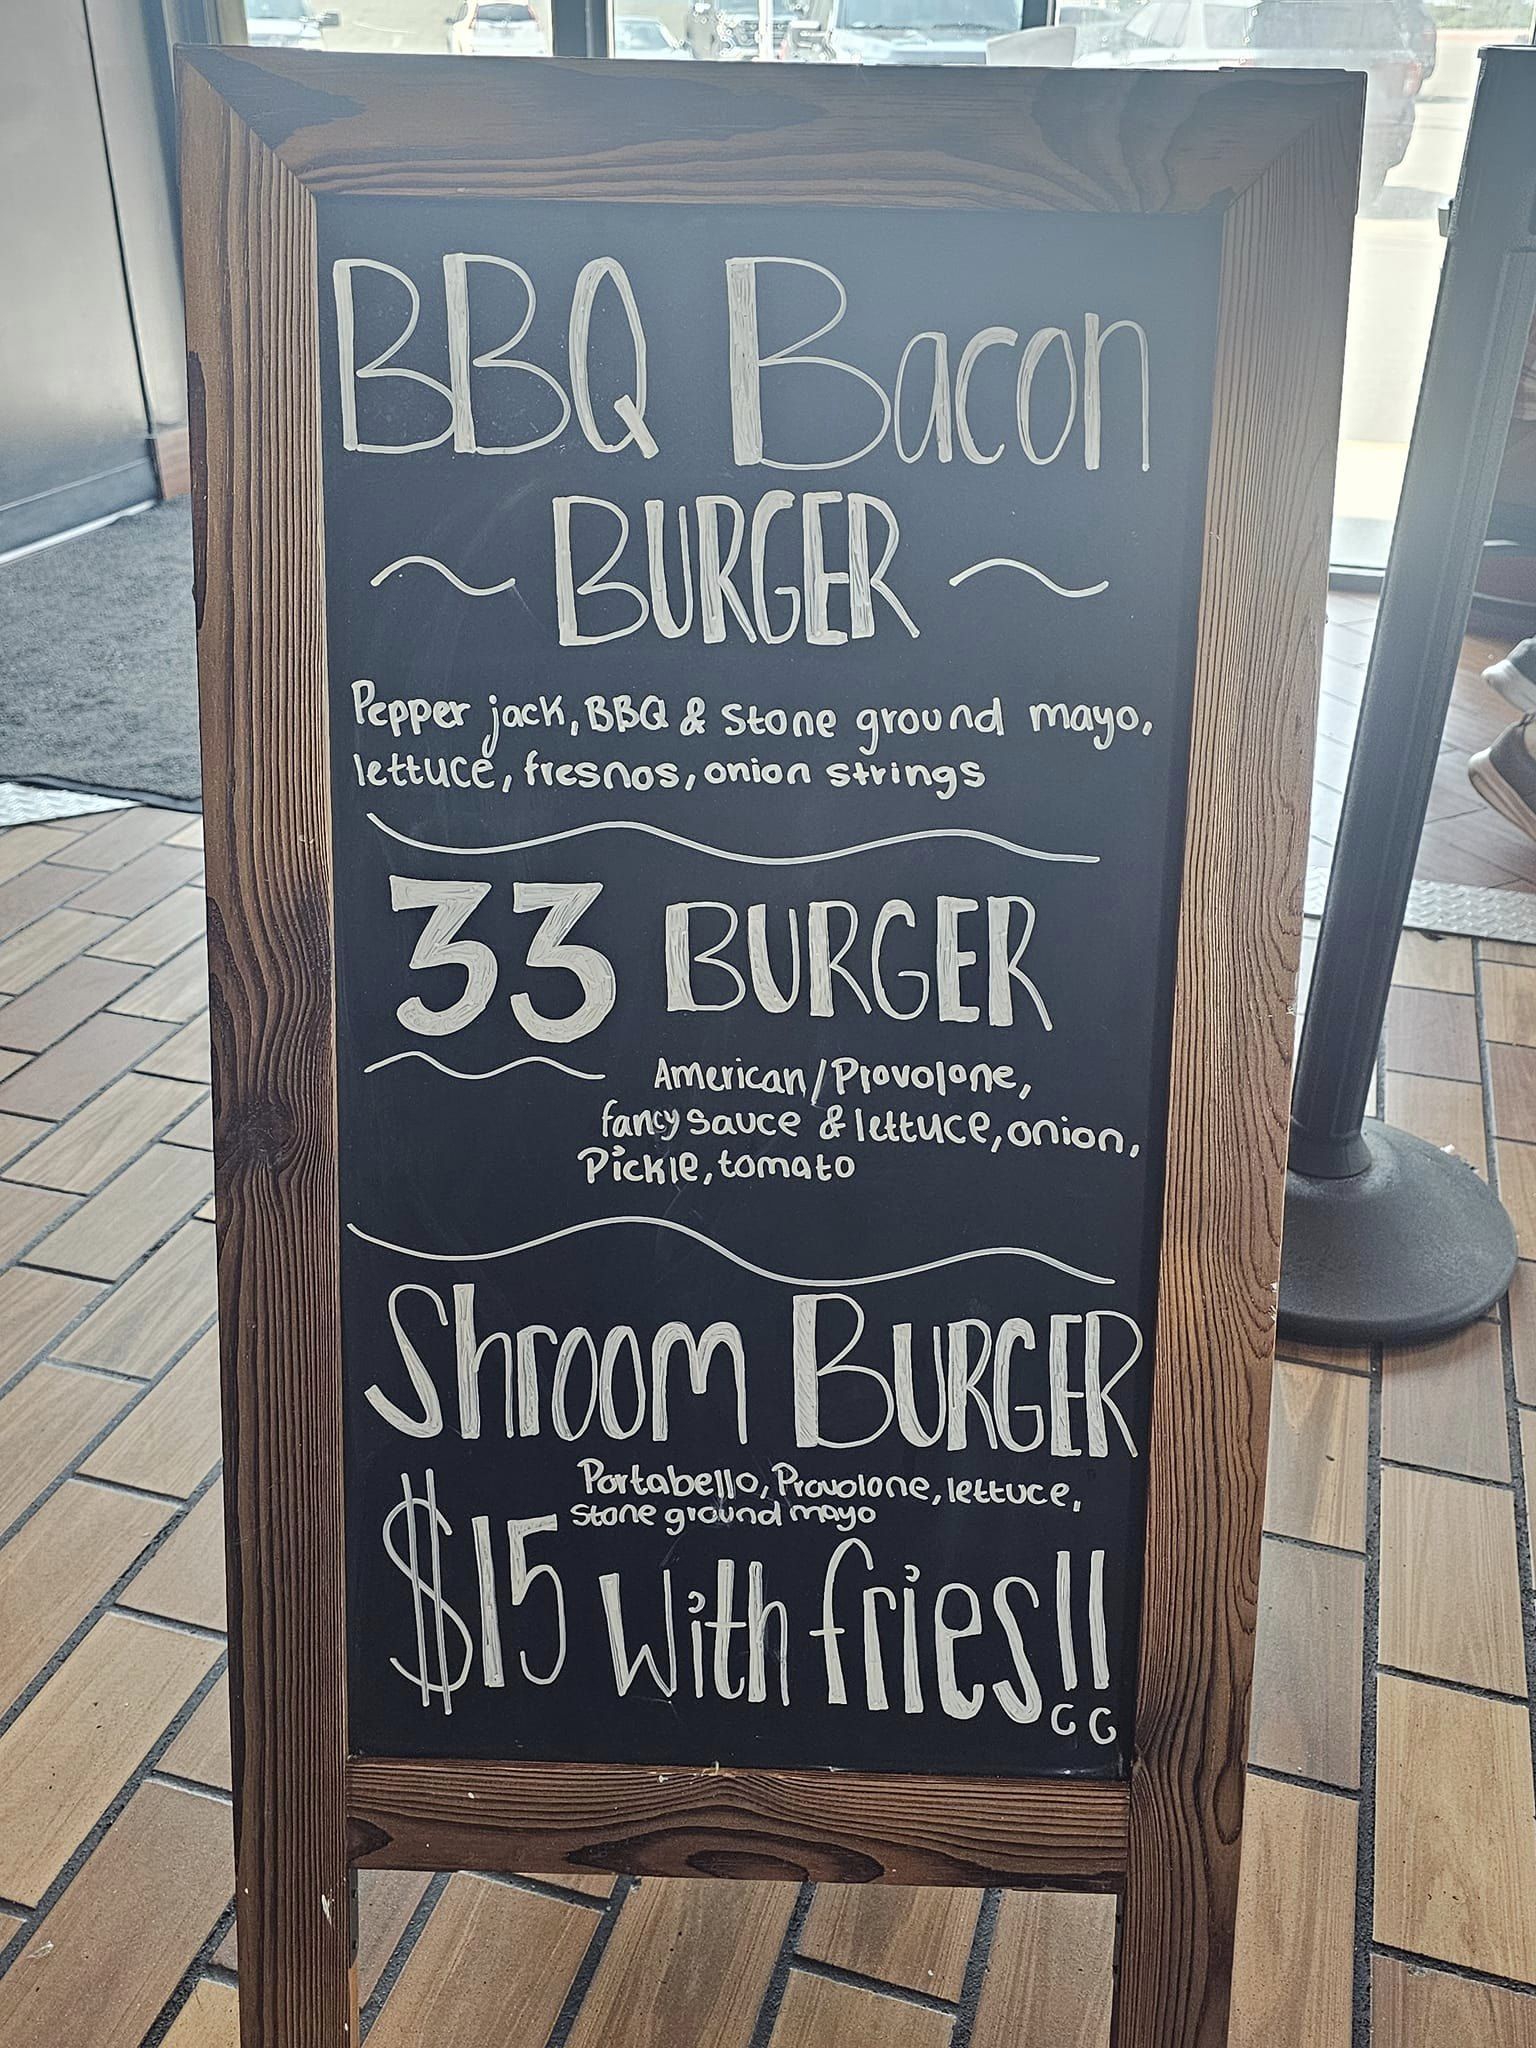 BBQ Bacon
~ BURGER ~
Pepper jack, BBQ & Stone ground mayo,
lettuce, fresnos, onion strings
33 BURGER
American/Provolone,
fancy sauce & lettuce, onion,
Pickle, tomato
Shroom BURGER
Portabello, Provolone, lettuce,
stone ground mayo
$15 with fries!!